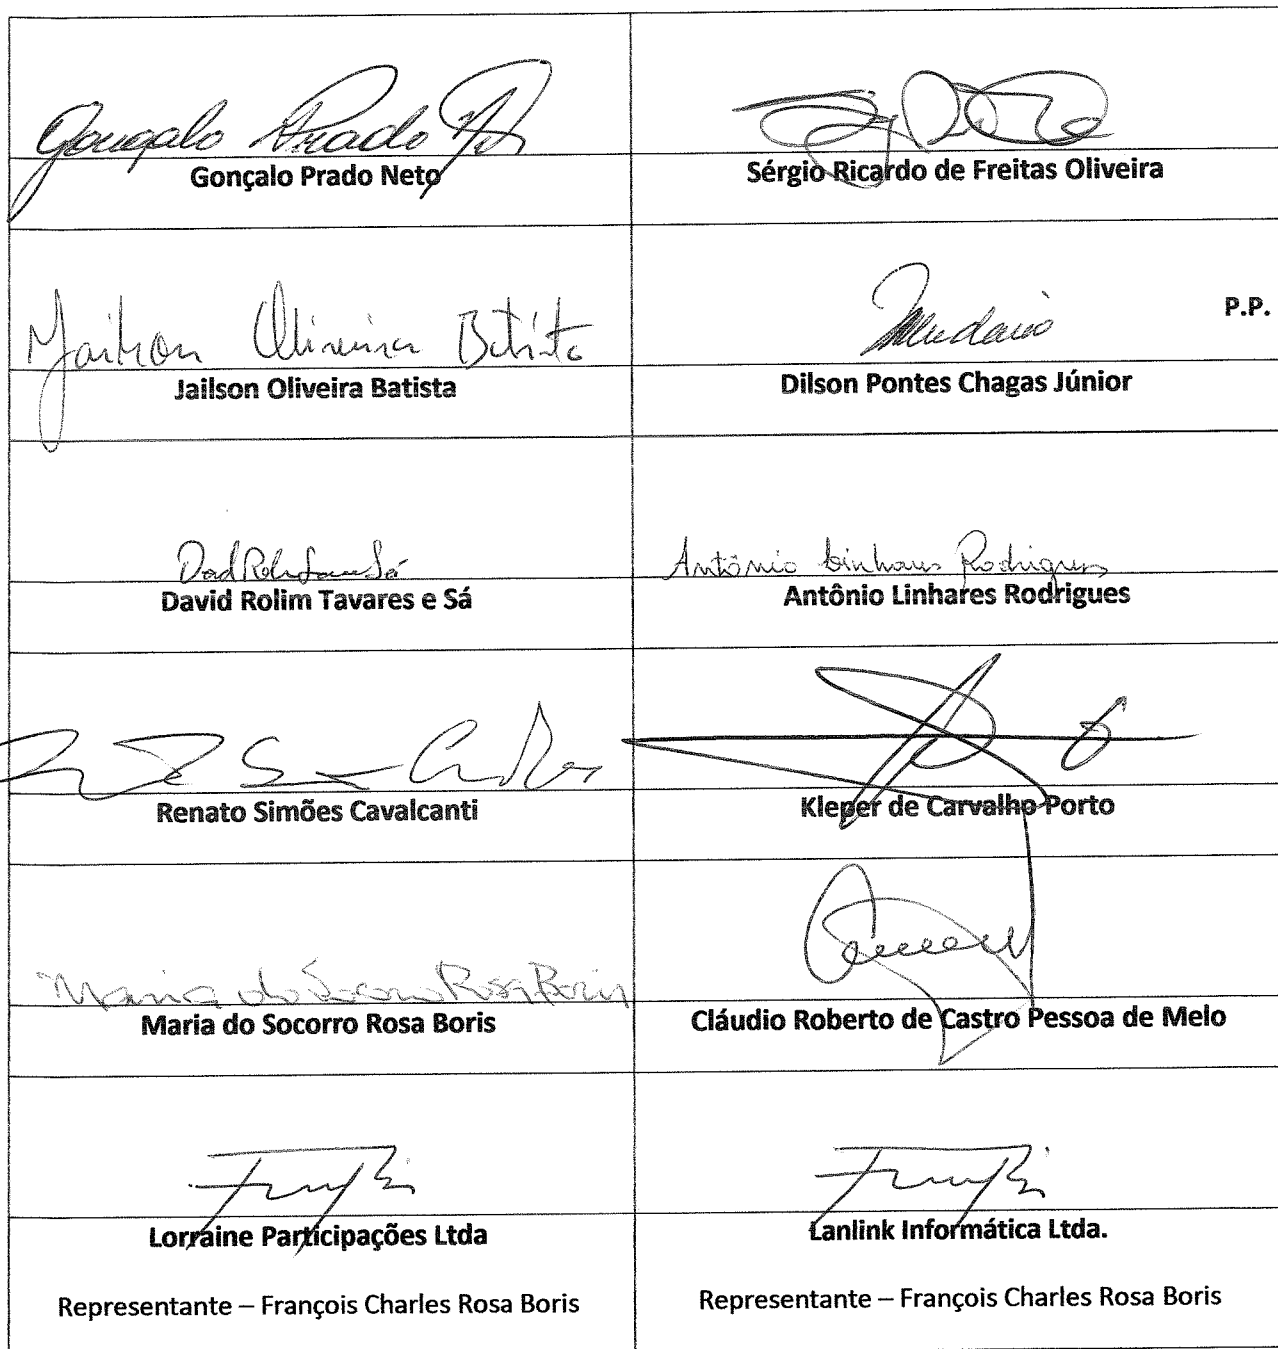 Gonçalo Prado Neto
Gonçalo Prado Neto
Sérgio Ricardo de Freitas Oliveira
Jailson Oliveira Batista
Jailson Oliveira Batista
P.P.
Dilson Pontes Chagas Júnior
David Rolim Tavares e Sá
Antônio Linhares Rodrigues
Antônio Linhares Rodrigues
Renato Simões Cavalcanti
Kleper de Carvalho Porto
Maria do Socorro Rosa Boris
Maria do Socorro Rosa Boris
Cláudio Roberto de Castro Pessoa de Melo
Lorraine Participações Ltda
Representante – François Charles Rosa Boris
Lanlink Informática Ltda.
Representante – François Charles Rosa Boris